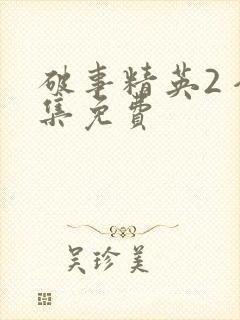 破事精英2
集免费
吴珍美